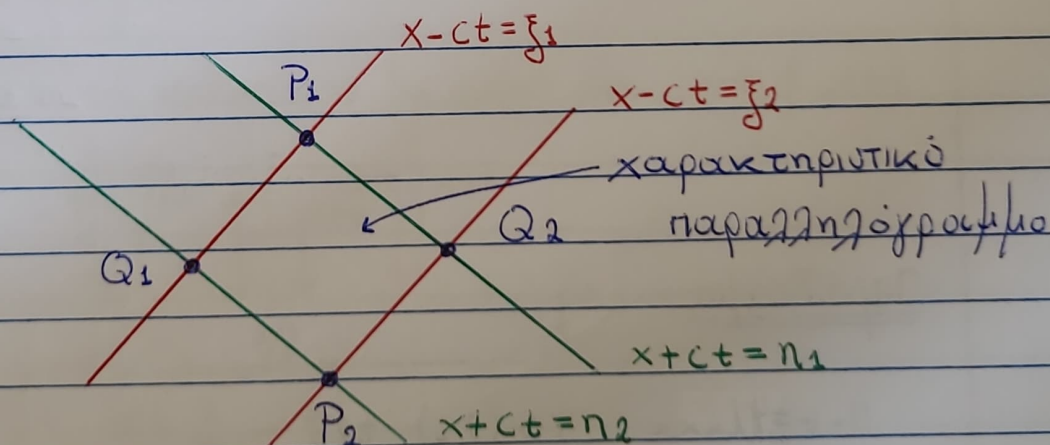 x-ct=ξ1
P1
x-ct=ξ2
χαρακτηριστικό
Q2
παραλληλόγραμμο
Q1
x+ct=n1
P2
x+ct=n2